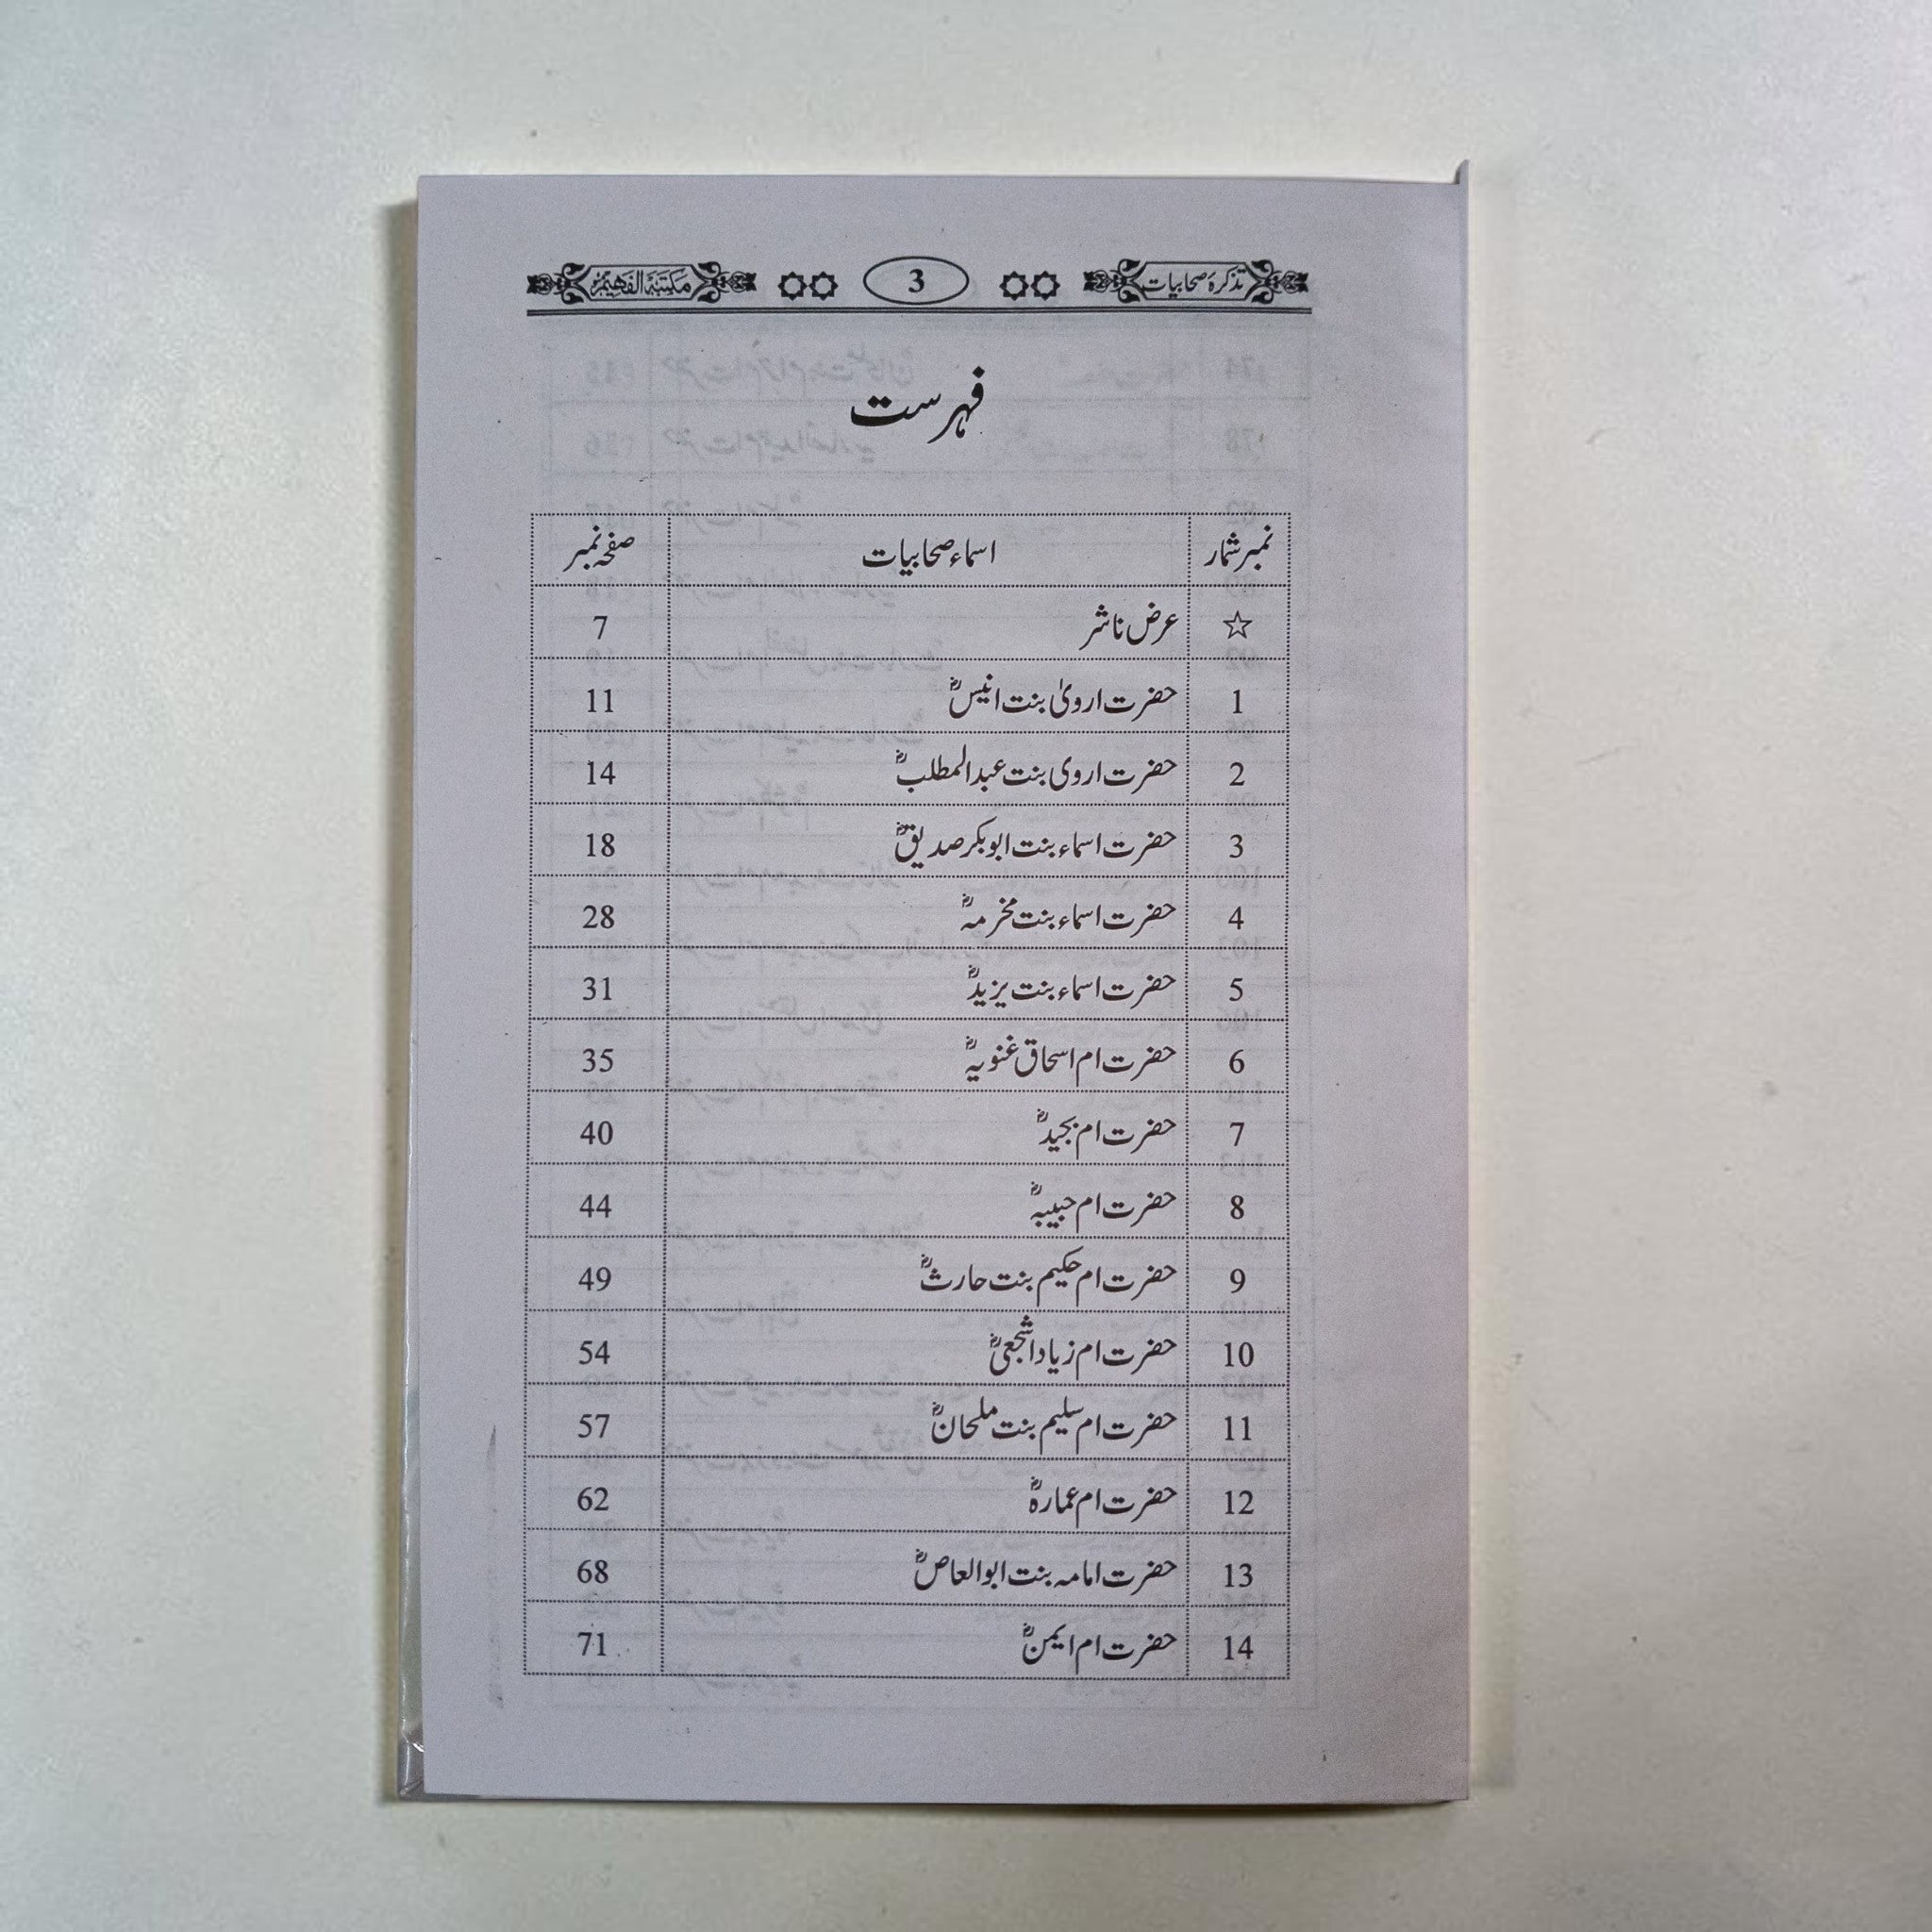 تذکرۂ صحابیات 3 مکتبۃ الفہیم
فہرست
نمبر شمار اسماء صحابیات صفحہ نمبر
☆ عرض ناشر 7
1 حضرت ارویٰ بنت انیسؓ 11
2 حضرت اروی بنت عبدالمطلبؓ 14
3 حضرت اسماء بنت ابوبکر صدیقؓ 18
4 حضرت اسماء بنت مخرمہؓ 28
5 حضرت اسماء بنت یزیدؓ 31
6 حضرت ام اسحاق غنویہؓ 35
7 حضرت ام بجیدؓ 40
8 حضرت ام حبیبہؓ 44
9 حضرت ام حکیم بنت حارثؓ 49
10 حضرت ام زیاد اشجعیؓ 54
11 حضرت ام سلیم بنت ملحانؓ 57
12 حضرت ام عمارہؓ 62
13 حضرت امامہ بنت ابوالعاصؓ 68
14 حضرت ام ایمنؓ 71